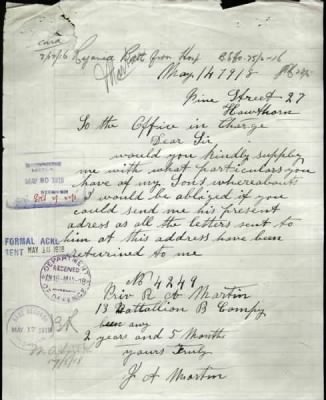 May 14 1918
Pine Street 27
Hawthorn
To the Office in Charge
Dear Sir
would you kindly supply
me with what particulars you
have of my Sons whereabouts
I would be ablized if you
could send me his present
adress as all the letters sent to
him at this address have been
returined to me
No 4249
Priv R A Martin
13 Battallion B Compy
been awy
2 years and 5 Months
yours truly
J A Martin
MAY 20 1918
FORMAL ACK
SENT MAY 18 1918
DEPARTMENT
RECEIVED
OF DEFENCE
BASE RECORDS
MAY 17 1918